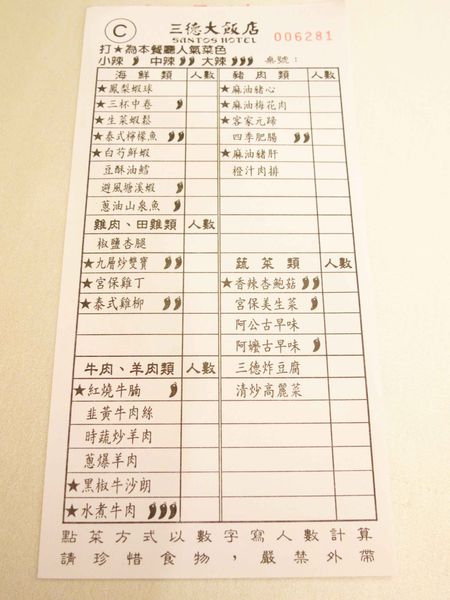 C
三德大飯店
SANTOS HOTEL
006281
打★為本餐廳人氣菜色
小辣 中辣 大辣 桌號：
海鮮類 人數
★鳳梨蝦球
★三杯中卷
★生菜蝦鬆
★泰式檸檬魚
★白芍鮮蝦
豆酥油鱈
避風塘溪蝦
蔥油山泉魚
雞肉、田雞類 人數
椒鹽杏腿
★九層炒雙寶
★宮保雞丁
★泰式雞柳
牛肉、羊肉類 人數
★紅燒牛腩
韭黃牛肉絲
時蔬炒羊肉
蔥爆羊肉
★黑椒牛沙朗
★水煮牛肉
豬肉類 人數
★麻油豬心
★麻油梅花肉
★客家元蹄
四季肥腸
★麻油豬肝
橙汁肉排
蔬菜類 人數
★香辣杏鮑菇
宮保美生菜
阿公古早味
阿嬤古早味
三德炸豆腐
清炒高麗菜
點菜方式以數字寫人數計算
請珍惜食物，嚴禁外帶